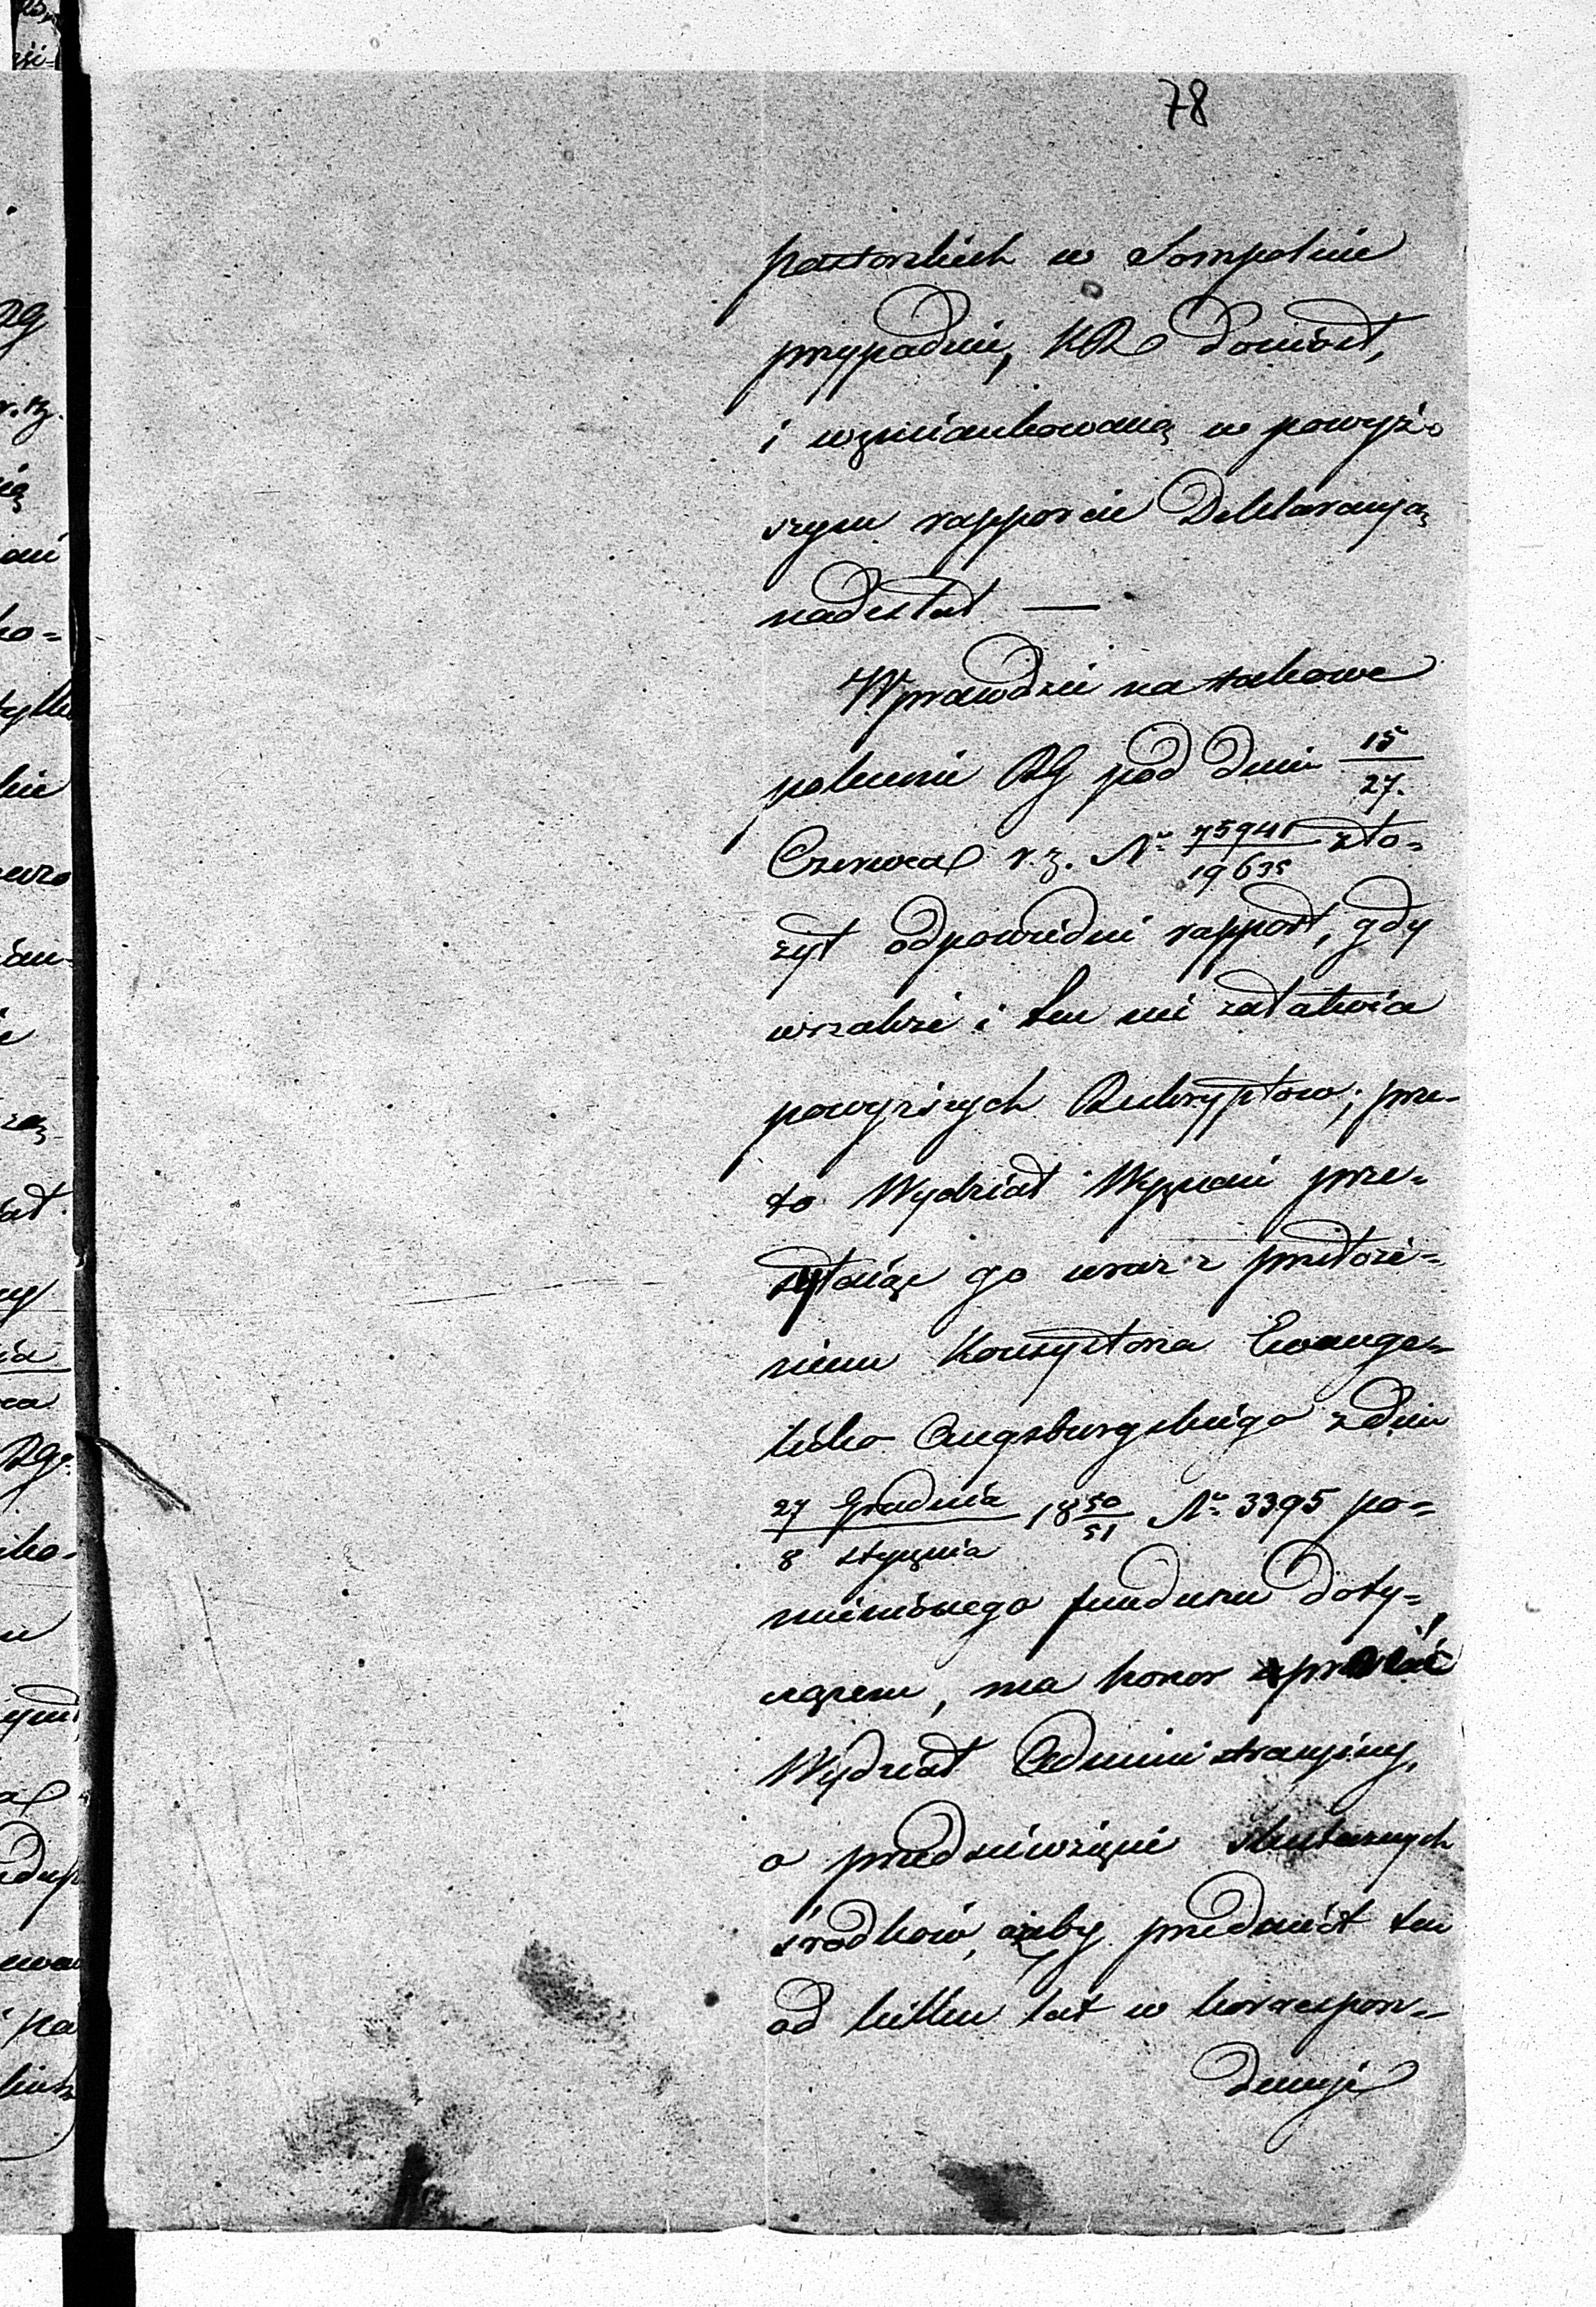 78
pastorskich w Sompolnie
przypadnie, KR doniósł,
i wzmiankowaną w powyż-
szym rapporcie Deklaracyją
nadesłał —
Wprawdzie na takowe
polecenie RG pod dniem 15/27.
Czerwca r. z. No 75941/19635 zło-
żył odpowiedni rapport, gdy
wszakże i ten nie załatwia
powyższych Reskryptów; prze-
to Wydział Wyznań prze-
syłając go wraz z przełoże-
niem Konsystorza Ewange-
licko Augsburgskiego z dnia
27 Grudnia/8 stycznia 1850/51 No 3395 po-
mienionego funduszu doty-
czącem, ma honor uprosić
Wydział Administracyjny,
o przedsiewzięcie skutecznych
środków, ażeby przedmiot ten
od kilku lat w korrespon-
dencyi